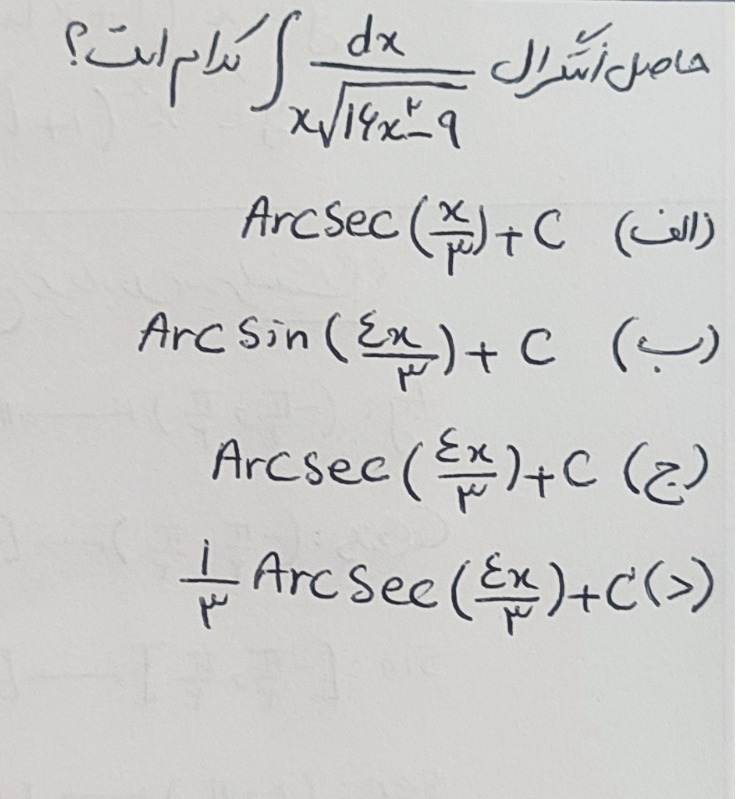 حاصل انتگرال ∫ dx / x√(۱۶x²−۹) کدام است؟
الف) ArcSec(x/۳)+C
ب) ArcSin(۴x/۳)+C
ج) Arcsec(۴x/۳)+C
د) ۱/۳ ArcSec(۴x/۳)+C